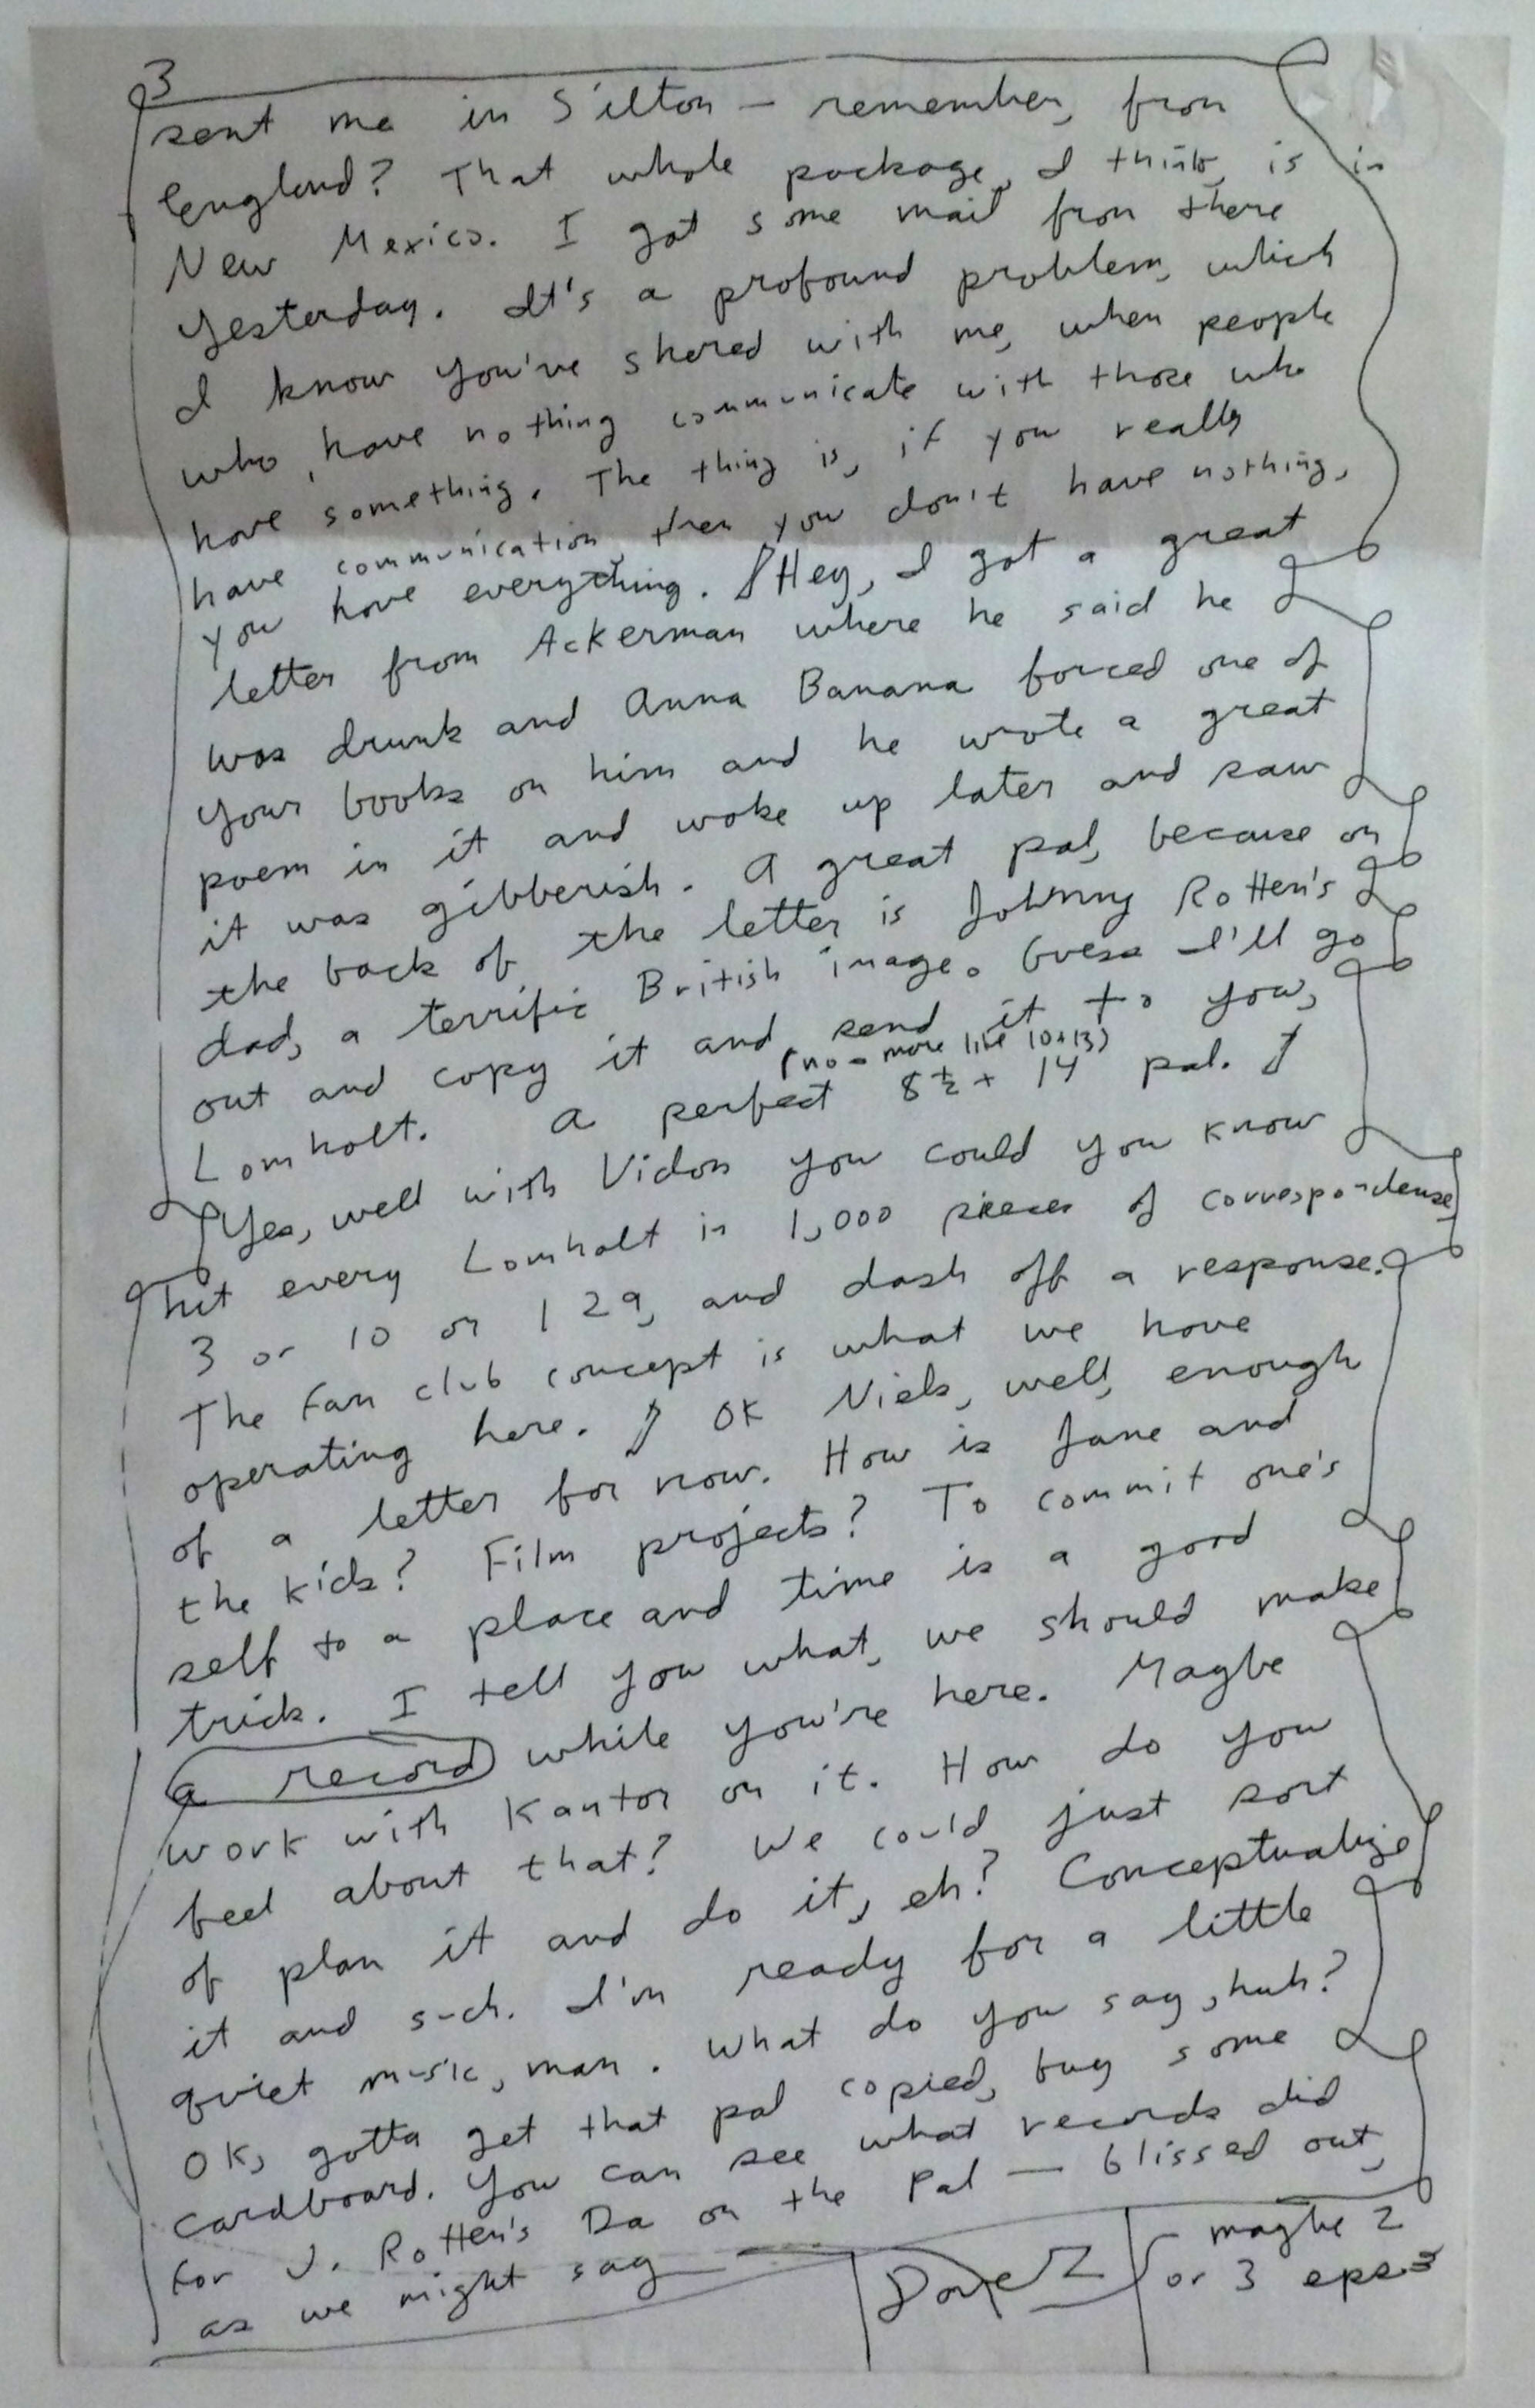 3
sent me in Silton — remember, from
England? That whole package, I think, is in
New Mexico. I got some mail from there
yesterday. It's a profound problem, which
I know you've shared with me, when people
who have nothing communicate with those who
have something. The thing is, if you really
have communication, then you don't have nothing,
you have everything. ¶ Hey, I got a great
letter from Ackerman where he said he
was drunk and Anna Banana forced one of
your books on him and he wrote a great
poem in it and woke up later and saw
it was gibberish. A great pal, because on
the back of the letter is Johnny Rotten's
dad, a terrific British image. Guess I'll go
out and copy it and send it to you,
(no - more like 10+13)
Lomholt. A perfect 8½ + 14 pal. ¶
Yes, well with Vidon you could you know
hit every Lomholt in 1,000 pieces of correspondense,
3 or 10 or 129, and dash off a response.
The fan club concept is what we have
operating here. ¶ OK Niels, well, enough
of a letter for now. How is Jane and
the kids? Film projects? To commit one's
self to a place and time is a good
trick. I tell you what, we should make
a record while you're here. Maybe
work with Kantor on it. How do you
feel about that? We could just sort
of plan it and do it, eh? Conceptualize
it and such. I'm ready for a little
quiet music, man. What do you say, huh?
OK, gotta get that pal copied, buy some
cardboard. You can see what records did
for J. Rotten's Da on the Pal — blissed out,
as we might say
Dave Z
maybe 2
or 3 eps.